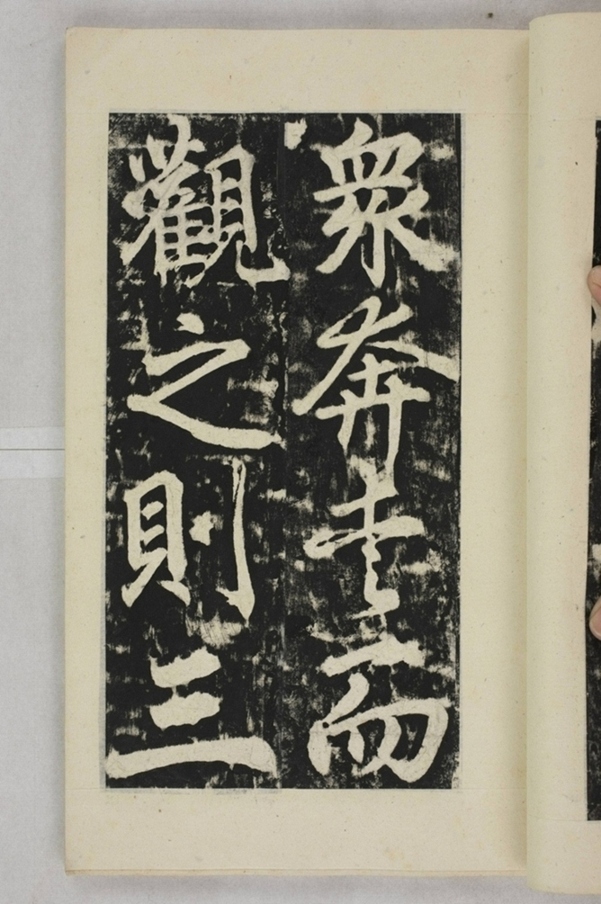 衆奔走而
觀之則三